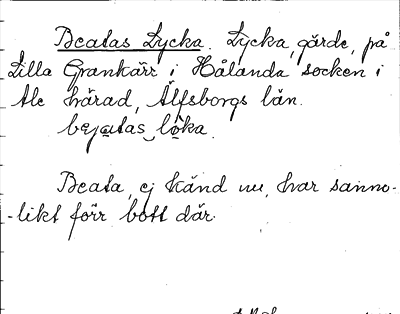 Beatas Lycka. Lycka, gärde, på
Lilla Grankärr i Hålanda socken i
Ale härad, Älfsborgs län.
bejatas löka.
Beata, ej känd nu, har sanno-
-likt förr bott där.